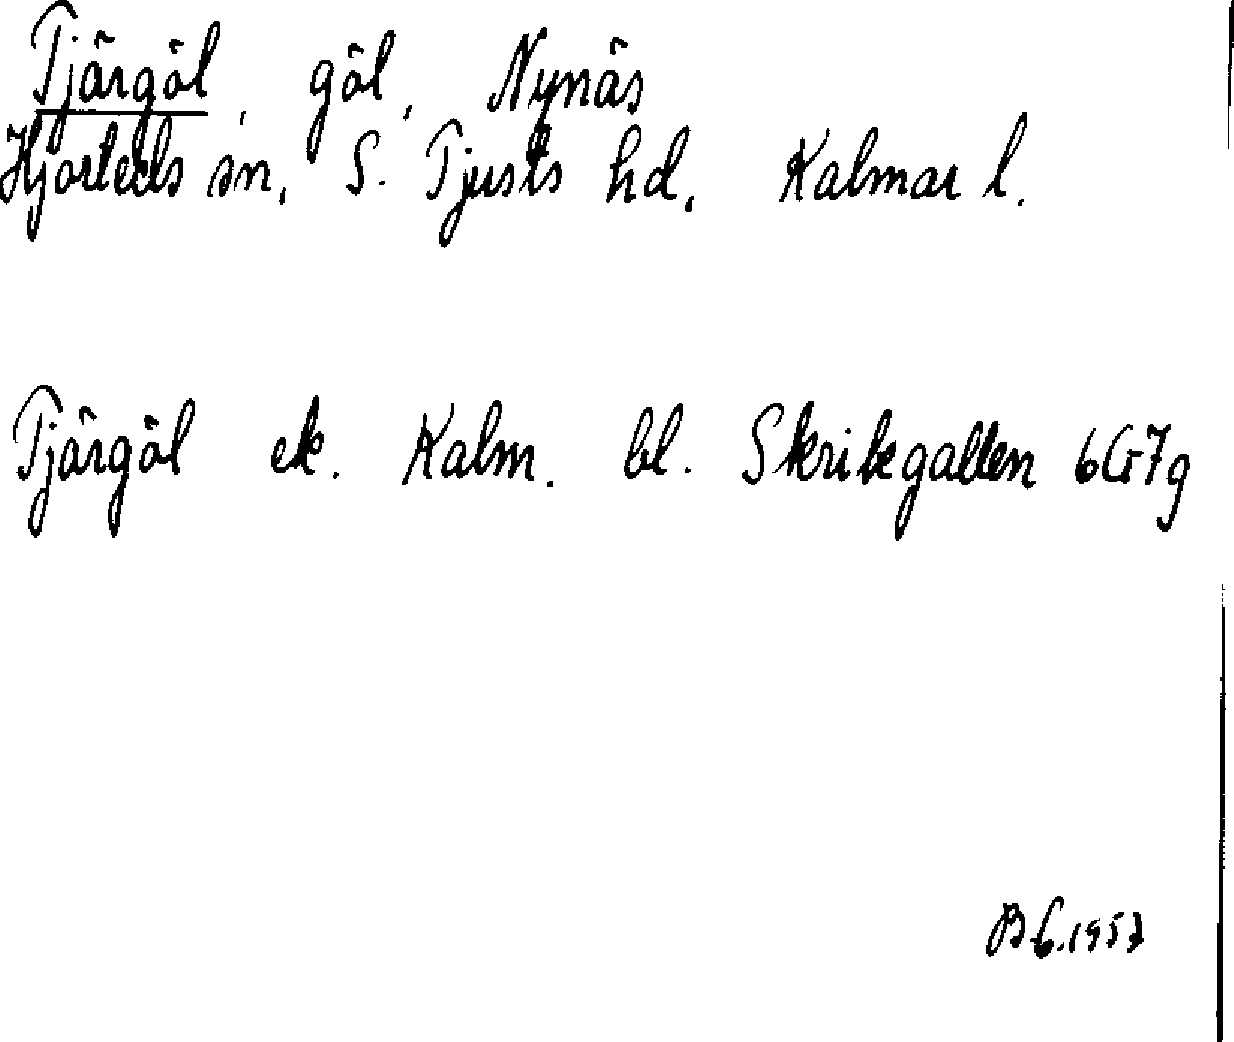 Tjärgöl, göl, Nynäs
Hjorteds sn, S. Tjusts hd, Kalmar l.
Tjärgöl ek. Kalm. bl. Skrikegallen 6G7g
BG.1957